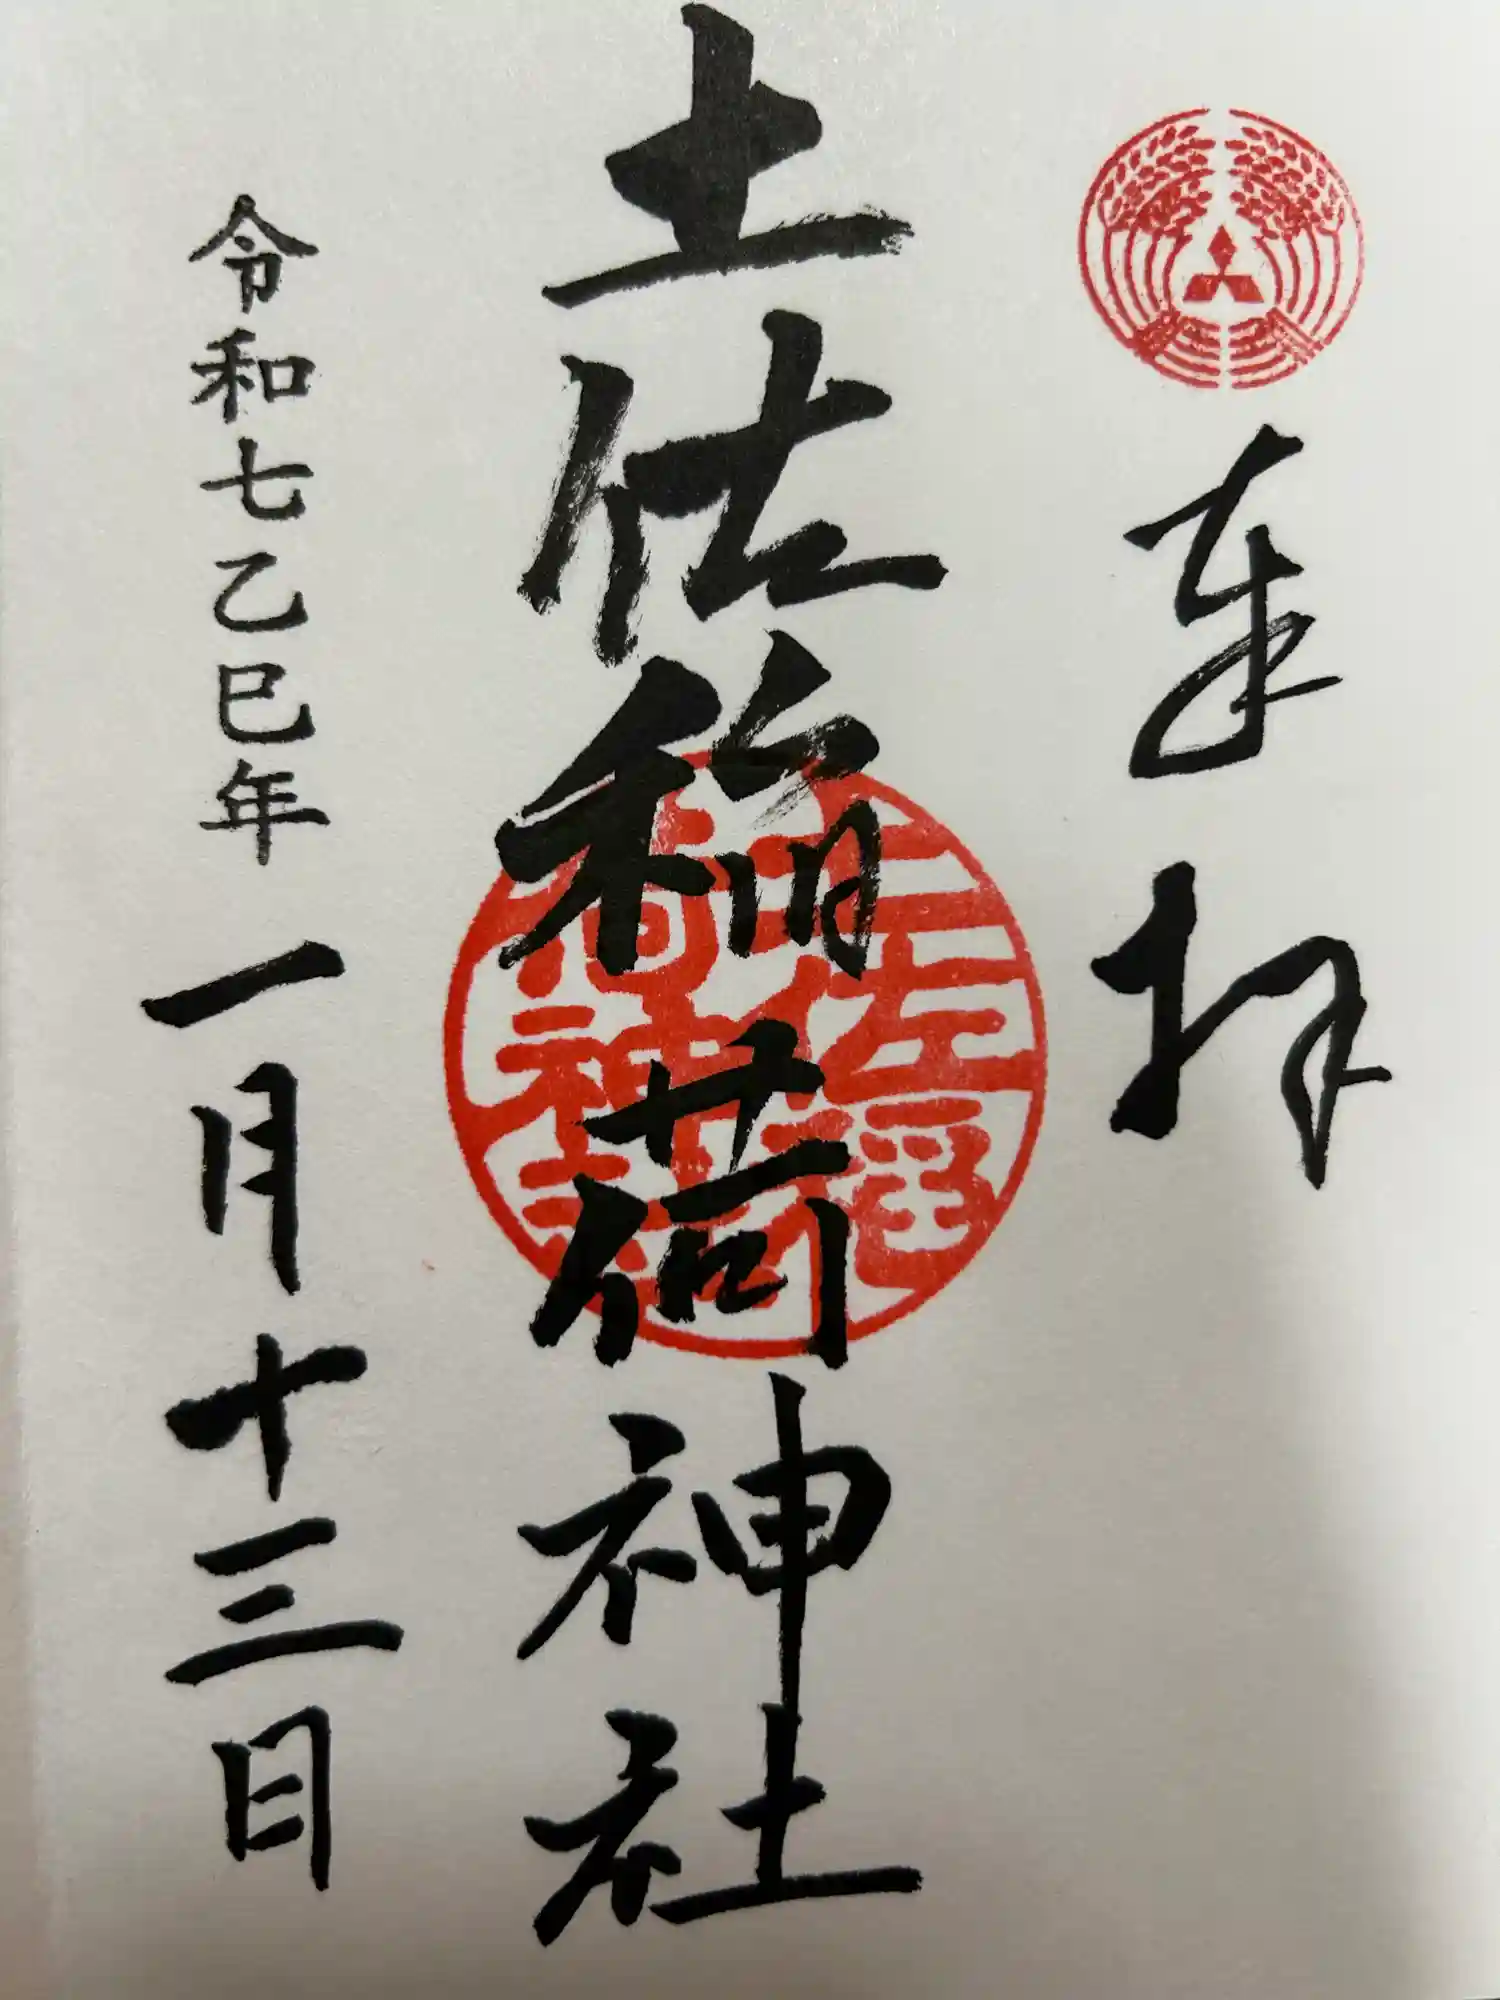 奉拝
土佐稲荷神社
土佐稲荷神社
令和七乙巳年 一月十三日